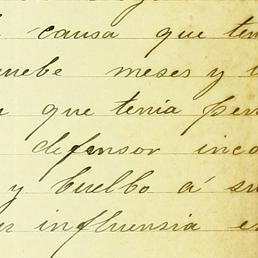 causa que ten
nuebe meses y
que tenia per
defensor inco
y buelbo á su
influensia es